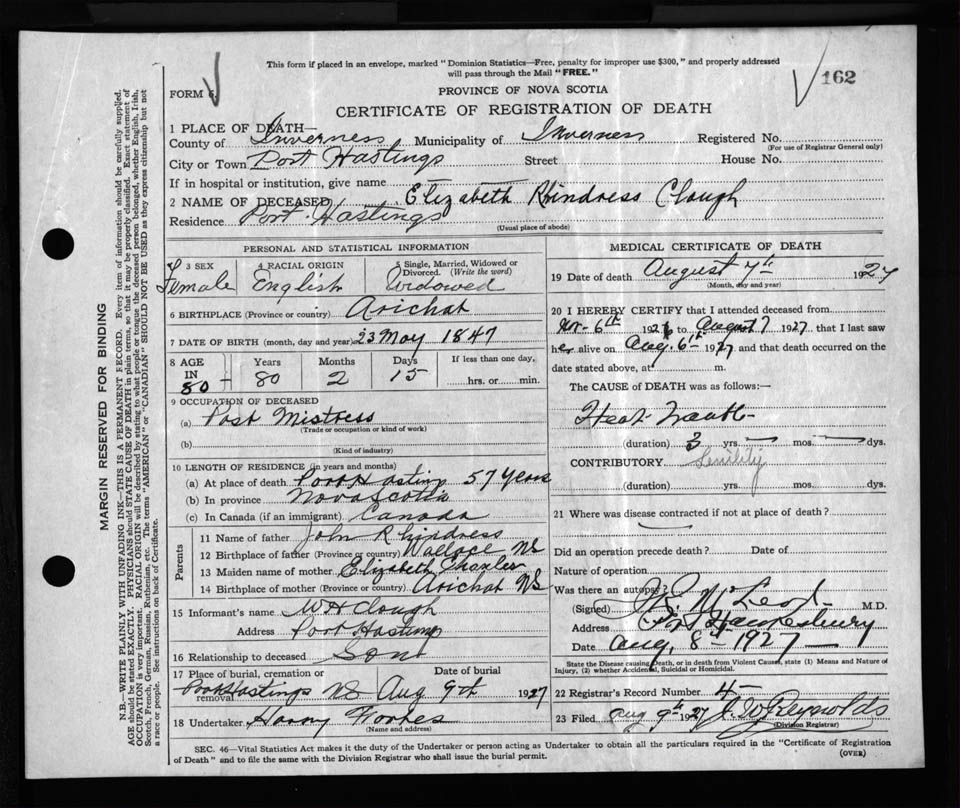 This form if placed in an envelope, marked "Dominion Statistics—Free, penalty for improper use $300," and properly addressed
will pass through the Mail "FREE."
162
FORM 6.
PROVINCE OF NOVA SCOTIA
CERTIFICATE OF REGISTRATION OF DEATH
1 PLACE OF DEATH—
County of Inverness Municipality of Inverness Registered No.
(For use of Registrar General only)
City or Town Port Hastings Street House No.
If in hospital or institution, give name
2 NAME OF DECEASED Elizabeth Rhindress Clough
Residence Port Hastings
(Usual place of abode)
PERSONAL AND STATISTICAL INFORMATION
3 SEX Female
4 RACIAL ORIGIN English
5 Single, Married, Widowed or Divorced. (Write the word) Widowed
6 BIRTHPLACE (Province or country) Arichat
7 DATE OF BIRTH (month, day and year) 23 May 1847
8 AGE IN 80 Years 80 Months 2 Days 15 If less than one day, hrs. or min.
9 OCCUPATION OF DECEASED
(a) Post Mistress
(Trade or occupation or kind of work)
(b)
(Kind of industry)
10 LENGTH OF RESIDENCE (in years and months)
(a) At place of death Port Hastings 57 years
(b) In province Nova Scotia
(c) In Canada (if an immigrant) Canada
Parents
11 Name of father John Rhindress
12 Birthplace of father (Province or country) Wallace NS
13 Maiden name of mother Elizabeth
14 Birthplace of mother (Province or country) Arichat NS
15 Informant's name W H Clough
Address Port Hastings
16 Relationship to deceased Son
17 Place of burial, cremation or removal Port Hastings NS Date of burial Aug 9th 1927
18 Undertaker Harry
(Name and address)
MEDICAL CERTIFICATE OF DEATH
19 Date of death August 7th 1927
(Month, day and year)
20 I HEREBY CERTIFY that I attended deceased from
6th 192 to August 7 1927, that I last saw
her alive on Aug. 6th 1927, and that death occurred on the
date stated above, at m.
The CAUSE of DEATH was as follows:—
Heart Trouble
(duration) 3 yrs. — mos. — dys.
CONTRIBUTORY Senility
(duration) yrs. mos. dys.
21 Where was disease contracted if not at place of death?
Did an operation precede death? Date of
Nature of operation
Was there an autopsy?
(Signed) McLeod M.D.
Address Port Hawkesbury
Date Aug, 8th 1927
State the Disease causing Death, or in death from Violent Causes, state (1) Means and Nature of
Injury, (2) whether Accidental, Suicidal or Homicidal.
22 Registrar's Record Number 4
23 Filed Aug 9th 1927 J. W Reynolds
(Division Registrar)
SEC. 46—Vital Statistics Act makes it the duty of the Undertaker or person acting as Undertaker to obtain all the particulars required in the "Certificate of Registration
of Death" and to file the same with the Division Registrar who shall issue the burial permit.
(OVER)
MARGIN RESERVED FOR BINDING
N.B.—WRITE PLAINLY WITH UNFADING INK—THIS IS A PERMANENT RECORD. Every item of information should be carefully supplied.
AGE should be stated EXACTLY. PHYSICIANS should STATE CAUSE OF DEATH in plain terms, so that it may be properly classified. Exact statement of
OCCUPATION is very important. RACIAL ORIGIN will be described by stating to what people or tongue the deceased person belonged, whether English, Irish,
Scotch, French, German, Russian, Ruthenian, etc. The terms "AMERICAN" or "CANADIAN" SHOULD NOT BE USED as they express citizenship but not
a race or people. See instructions on back of Certificate.